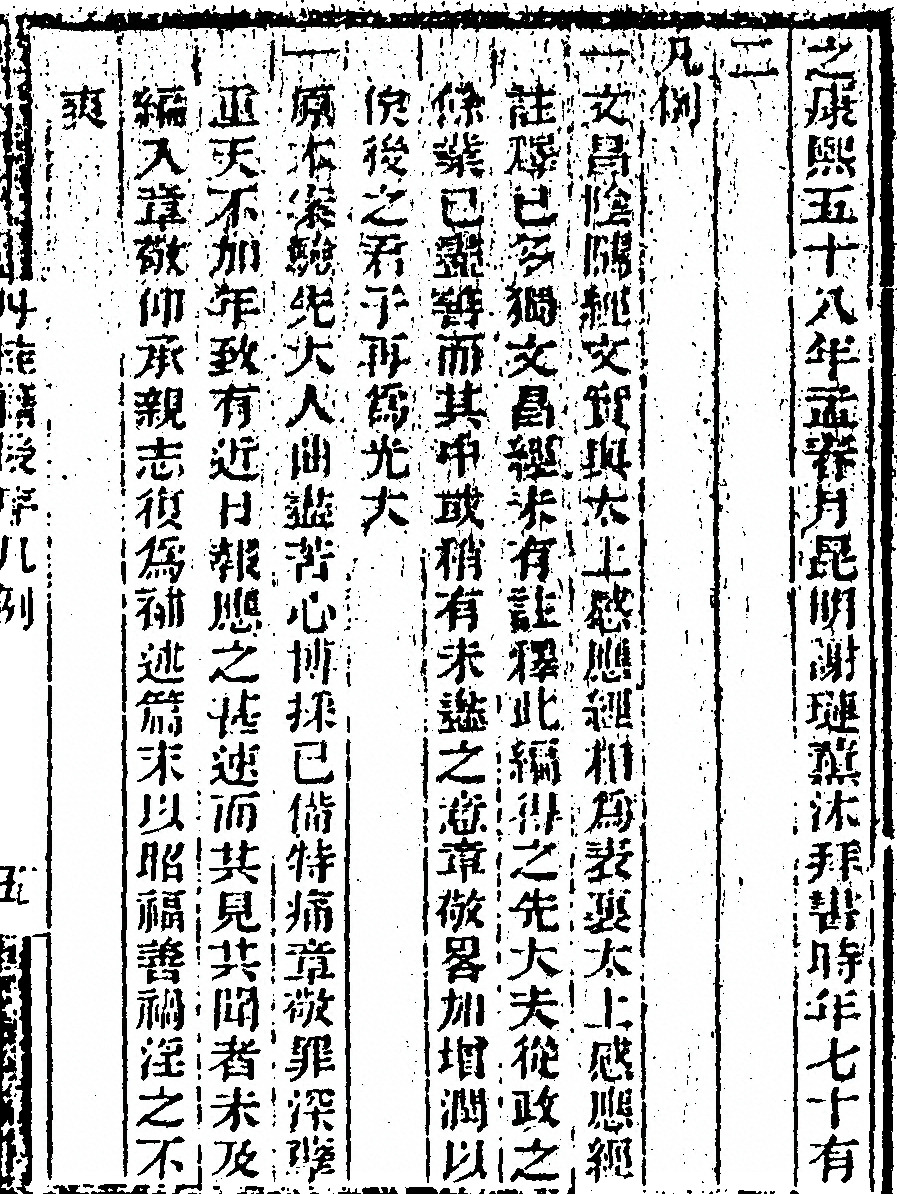 之康熙五十八年孟春月昆明謝璉薰沐拜書時年七十有
二
凡例
一文昌陰隲經文實與太上感應經相為表裏太上感應經
註釋已多獨文昌經未有註釋此編得之先大夫從政之
餘業已盡善而其中或稍有未盡之意章敬畧加增潤以
俟後之君子再為光大
一原本案驗先大人曲盡苦心博採已備特痛章敬罪深孽
重天不加年致有近日報應之甚速而共見共聞者未及
編入章敬仰承親志復為補述篇末以昭福善禍淫之不
爽
丹桂籍後序凡例
五